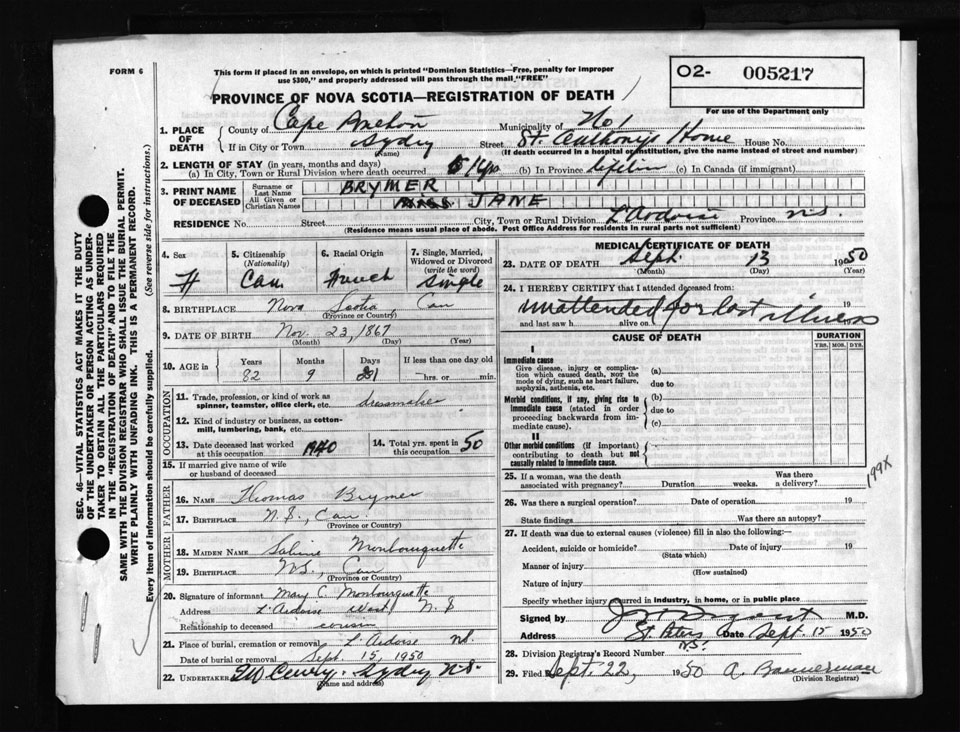 FORM 6
This form if placed in an envelope, on which is printed "Dominion Statistics—Free, penalty for improper
use $300," and properly addressed will pass through the mail "FREE"
O2- 005217
For use of the Department only
PROVINCE OF NOVA SCOTIA—REGISTRATION OF DEATH
SEC. 46—VITAL STATISTICS ACT MAKES IT THE DUTY
OF THE UNDERTAKER OR PERSON ACTING AS UNDER-
TAKER TO OBTAIN ALL THE PARTICULARS REQUIRED
IN THE "REGISTRATION OF DEATH" AND TO FILE THE
SAME WITH THE DIVISION REGISTRAR WHO SHALL ISSUE THE BURIAL PERMIT.
WRITE PLAINLY WITH UNFADING INK. THIS IS A PERMANENT RECORD.
Every item of information should be carefully supplied. (See reverse side for instructions.)
1. PLACE OF DEATH County of Cape Breton Municipality of No 1
If in City or Town Sydney Street St Anthony's Home House No.
(Name) (If death occurred in a hospital or institution, give the name instead of street and number)
2. LENGTH OF STAY (in years, months and days)
(a) In City, Town or Rural Division where death occurred yrs (b) In Province Lifetime (c) In Canada (if immigrant)
3. PRINT NAME OF DECEASED Surname or Last Name BRYMER
All Given or Christian Names JANE
RESIDENCE No. Street City, Town or Rural Division L'Ardoise Province N.S.
(Residence means usual place of abode. Post Office Address for residents in rural parts not sufficient)
4. Sex 5. Citizenship (Nationality) 6. Racial Origin 7. Single, Married, Widowed or Divorced (write the word)
Can. French Single
8. BIRTHPLACE Nova Scotia, Can
(Province or Country)
9. DATE OF BIRTH Nov. 23, 1867
(Month) (Day) (Year)
10. AGE in Years Months Days If less than one day old
82 9 21 hrs. or min.
OCCUPATION
11. Trade, profession, or kind of work as spinner, teamster, office clerk, etc. dressmaker
12. Kind of industry or business, as cotton-mill, lumbering, bank, etc.
13. Date deceased last worked at this occupation 1940 14. Total yrs. spent in this occupation 50
15. If married give name of wife or husband of deceased
FATHER
16. NAME Thomas Brymer
17. BIRTHPLACE N.S., Can.
(Province or Country)
MOTHER
18. MAIDEN NAME Sabine Monbourquette
19. BIRTHPLACE N.S., Can
(Province or Country)
20. Signature of informant Mary C. Monbourquette
Address L'Ardoise West N.S
Relationship to deceased cousin
21. Place of burial, cremation or removal L'Ardoise N.S.
Date of burial or removal Sept. 15, 1950
22. UNDERTAKER Sydney N.S.
(Name and address)
MEDICAL CERTIFICATE OF DEATH
23. DATE OF DEATH Sept. 13 1950
(Month) (Day) (Year)
24. I HEREBY CERTIFY that I attended deceased from:
unattended for last illness 19
and last saw h alive on 19
CAUSE OF DEATH DURATION
YRS. MOS. DYS.
I
Immediate cause
Give disease, injury or complication which caused death, NOT the mode of dying, such as heart failure, asphyxia, asthenia, etc. (a)
due to
Morbid conditions, if any, giving rise to immediate cause (stated in order proceeding backwards from immediate cause). (b)
due to
(c)
II
Other morbid conditions (if important) contributing to death but not causally related to immediate cause.
25. If a woman, was the death associated with pregnancy? Duration weeks. Was there a delivery?
199X
26. Was there a surgical operation? Date of operation 19
State findings Was there an autopsy?
27. If death was due to external causes (violence) fill in also the following:
Accident, suicide or homicide? Date of injury 19
(State which)
Manner of injury
(How sustained)
Nature of injury
Specify whether injury occurred in industry, in home, or in public place
Signed by M.D.
Address St. Peters N.S. Date Sept. 15 1950
28. Division Registrar's Record Number
29. Filed Sept. 22, 1950 A. Bannerman
(Division Registrar)